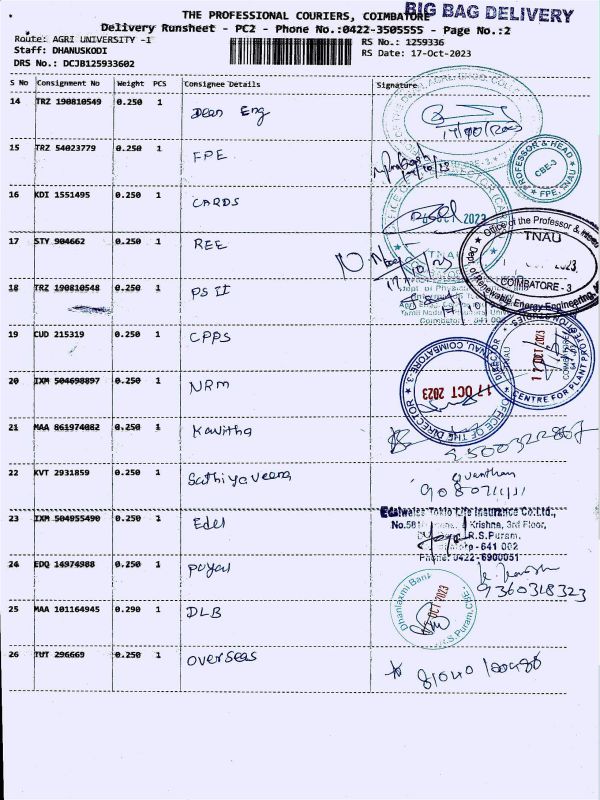 THE PROFESSIONAL COURIERS, COIMBATORE
BIG BAG DELIVERY
Delivery Runsheet - PC2 - Phone No.:0422-3505555 - Page No.:2
Route: AGRI UNIVERSITY -1
RS No.: 1259336
Staff: DHANUSKODI
RS Date: 17-Oct-2023
DRS No.: DCJB125933602
S No Consignment No Weight PCS Consignee Details Signature
14 TRZ 190810549 0.250 1 Dean Eng
15 TRZ 54023779 0.250 1 FPE
PROFESSOR & HEAD
CBE-3
FPE, TNAU
16 KDI 1551495 0.250 1 CARDS
2023
17 STY 904662 0.250 1 REE
Office of the Professor &
TNAU
2023
COIMBATORE - 3
Dept. of Renewable Energy Engineering
18 TRZ 190810548 0.250 1 PS II
TNAU
Coimbatore - 641 003
19 CUD 215319 0.250 1 CPPS
DIRECTOR
TNAU
CENTRE FOR PLANT PROTECTION STUDIES
20 IXM 504698897 0.250 1 NRM
17 OCT 2023
OFFICE OF THE DIRECTOR
TNAU COIMBATORE-3
21 MAA 861974082 0.250 1 Kavitha
22 KVT 2931859 0.250 1 Sathiyaveena
23 IXM 504955490 0.250 1 Edel
Edelweiss Tokio Life Insurance Co.Ltd.,
Krishna, 3rd Floor,
R.S.Puram,
641 002
Phone: 0422-6900051
24 EDQ 14974988 0.250 1 Payal
9360318323
25 MAA 101164945 0.290 1 DLB
Dhanlaxmi Bank
OCT 2023
R.S.Puram,CBE
26 TUT 296669 0.250 1 Overseas